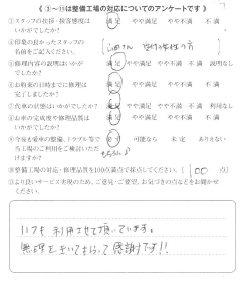 《 ①～⑪は整備工場の対応についてのアンケートです 》
①スタッフの挨拶・接客態度は 満足 やや満足 やや不満 不満
いかがでしたか?
②印象の良かったスタッフの
名前をご記入ください。 山田さん 受付の女性の方
③修理内容の説明はいかが 満足 やや満足 やや不満 説明なし
でしたか?
④お約束の日時までに修理は 満足 やや満足 やや不満 不満
完了しましたか?
⑤代車の状態はいかがでしたか? 満足 やや満足 やや不満 不満
⑥お車の完成度や修理品質は 満足 やや満足 やや不満 不満
いかがでしたか?
⑦今後も愛車の整備、トラブル等で 必ず 可能なら 未定 ありえない
当工場のご利用をご検討いた
だけますか? もちろん♪
⑧整備工場の対応・修理品質を100点満点で採点してください。( 100 点)
⑨より良いサービス実現のため、ご意見・ご要望、お気づきの点などをお聞かせ
ください。
いつも 利用させて頂いています。
無理をきいてもらって感謝です!!